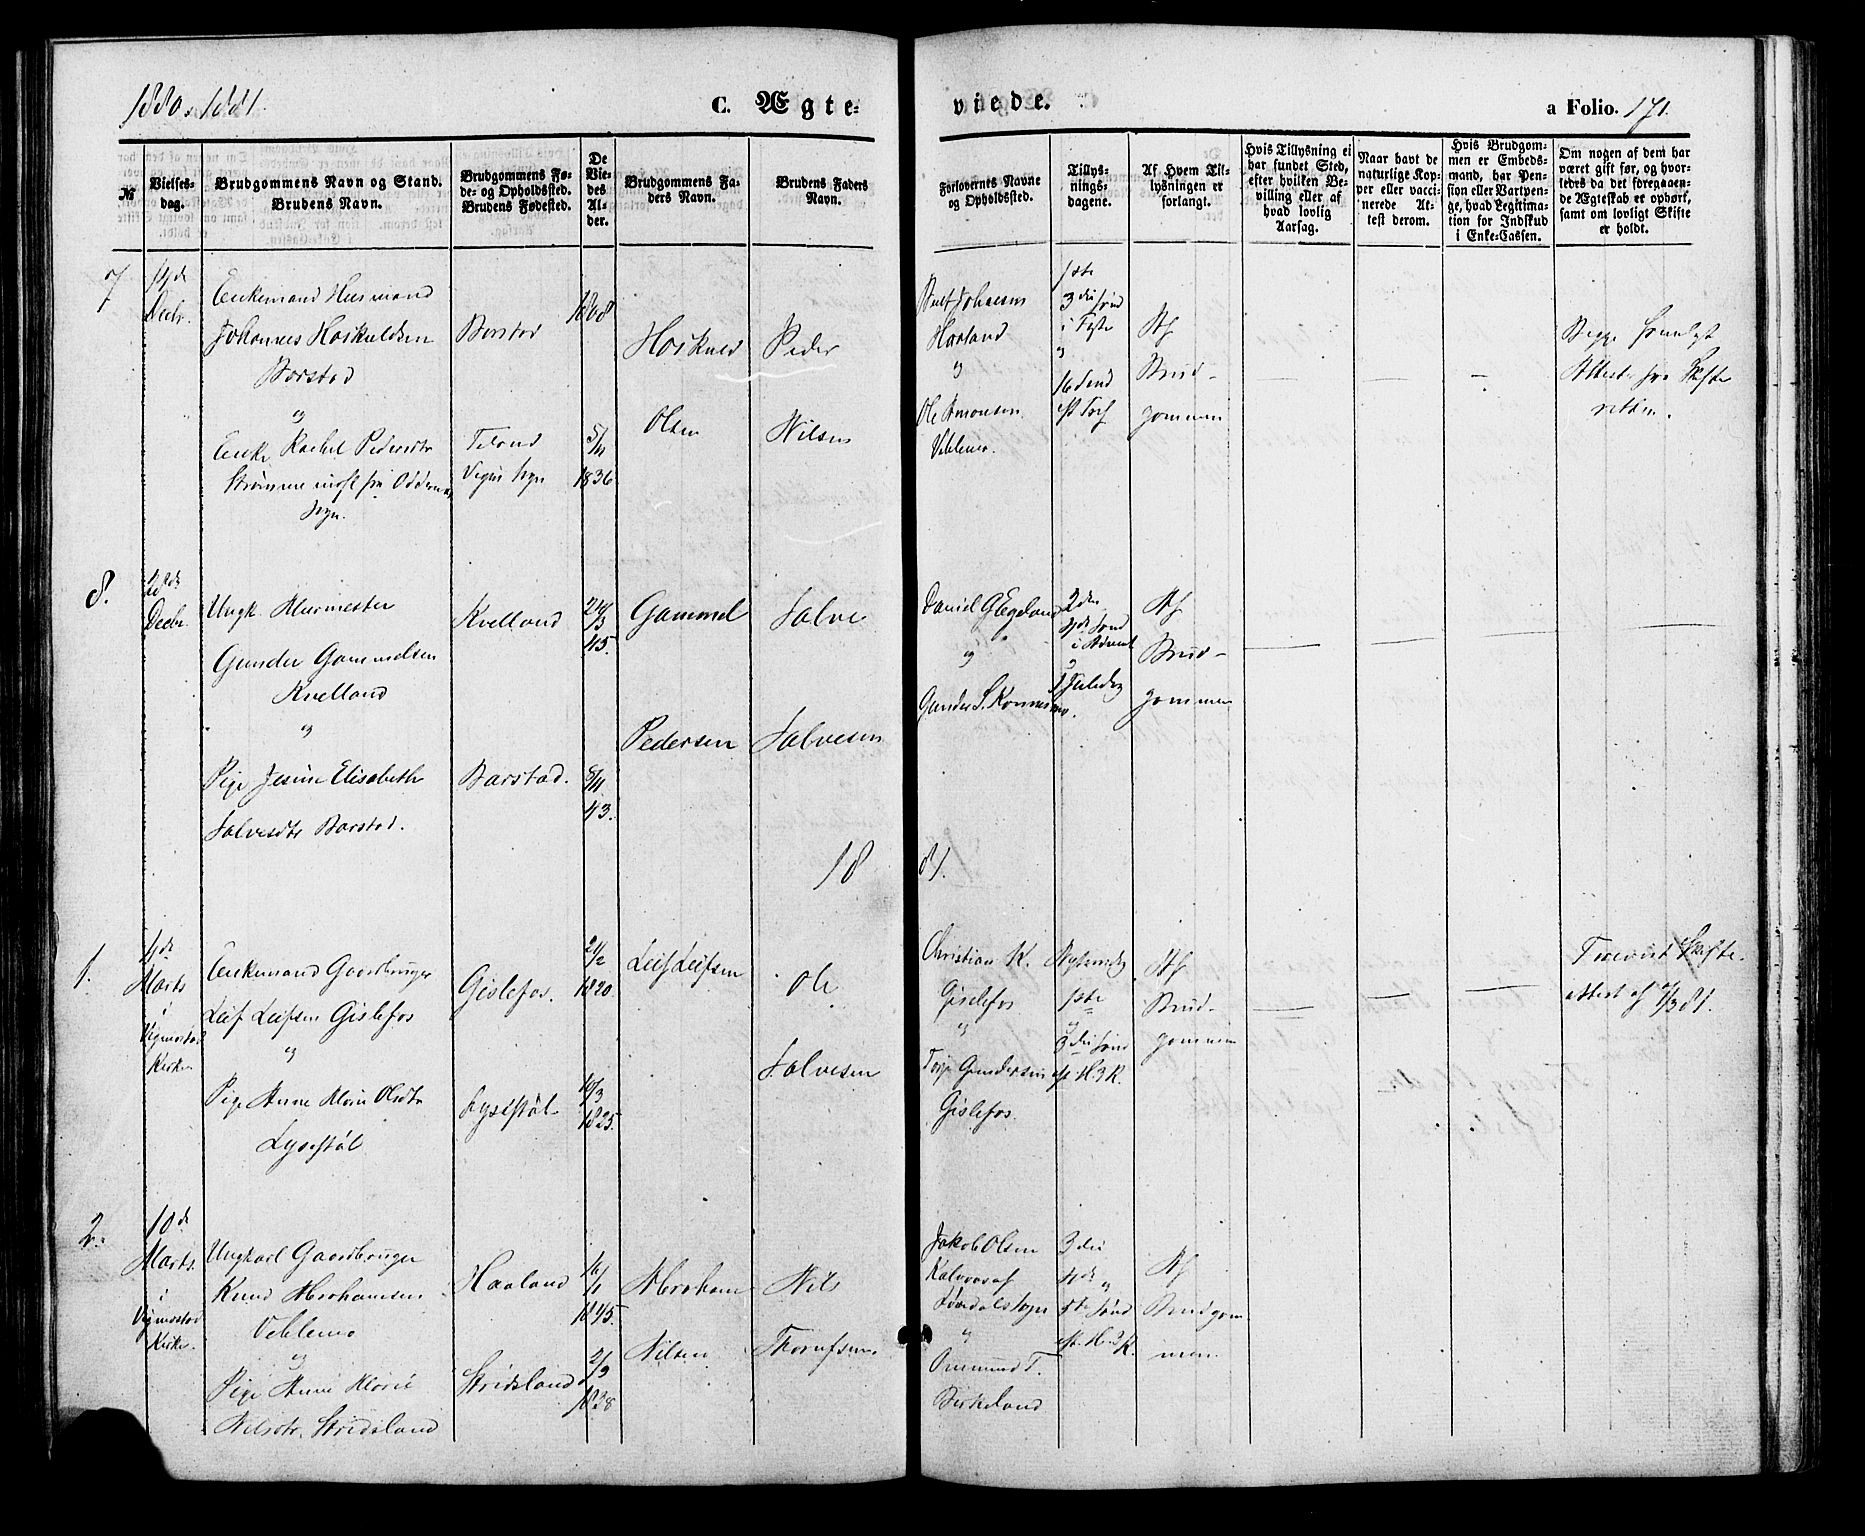 1880. 1881.
C. Ægte-
viede.
a Folio. 171.
№
Vielses-
dag.
Brudgommens Navn og Stand.
Brudens Navn.
Brudgommens Fø-
de- og Opholdssted.
Brudens Fødested.
De
Vie-
des
Al-
der.
Brudgommens Fa-
ders Navn.
Brudens Faders
Navn.
Forlovernes Navne
og Opholdssted.
Tillys-
nings-
dagene.
Af Hvem Til-
lysningen er
forlangt.
Hvis Tillysning ei
har fundet Sted,
efter hvilken Be-
villing eller af
hvad lovlig
Aarsag.
Naar havt de
naturlige Kop-
per eller vacci-
nerede At-
test derom.
Hvis Brudgom-
men er Embeds-
mand, har Pen-
sion eller Vartpen-
ge, hvad Legitima-
tion for Indskud
i Enke-Cassen.
Om nogen af dem har
været gift før, og hvor-
ledes da det foregaaen-
de Ægteskab er ophørt,
samt om lovligt Skifte
er holdt.
7
14de
Decbr.
Enkemand Husmand
Johannes Hoskuldsen
Barstad
og
Enke Rachel Pedersdtr
Strømme indfl. fra Oddernæs
sogn.
Barstad
Teland
Vegus sogn
1808
5/11
1836
Hoskuld
Olsen
Peder
Nilsen
Haaland
og
Ole Amonsen
Veblemo.
1ste
3die Sønd
og
16 Sønd
Af
Brud-
gommen
Begge
Attest fra Skifte
retten.
8.
Decbr.
Ungk. Murmester
Gunder Gammelsen
Kvelland
og
Pige Jesine Elisabeth
Salvesdtr Barstad.
Kvelland
Barstad.
24/3
45.
8/11
43.
Gammel
Pedersen
Salve
Salvesen
Daniel G Egeland
og
Gunder S. Konnesmo.
2den
4de Sønd
i Advent
og
1 Juledag
Af
Brud-
gommen
18
81.
1.
4de
Marts
i
Vigmostad
Kirke
Enkemand Gaardbruger
Leif Leifsen Gislefos
og
Pige Anne Marie Olsdtr
Lysestøl
Gislefos.
Lysestøl
24/2
1820
10/3
1825.
Leif Leifsen
Ole
Salvesen
Christian K.
Gislefos
og
Terje Gundersen
Gislefos.
Nytaarsdag
1ste
og
3die Sønd
ef. H. 3 K.
Af
Brud-
gommen
Forevist Skifte-
attest af 4/3 81.
2.
10de
Marts.
i
Vigmostad
Kirke.
Ungkarl Gaardbruger
Knud Abrahamsen
Veblemo
og
Pige Anne Marie
Nilsdtr. Stridsland
Haaland
Stridsland
16/1
1845.
2/9
1828
Abraham
Nilsen
Nils
Thorufsen.
Jakob Olsen
Kalvaas af
Løvdals sogn
og
Omund T.
Birkeland
3die
4de og
5te Sønd
ef. H. 3 K.
Af
Brudgom-
men